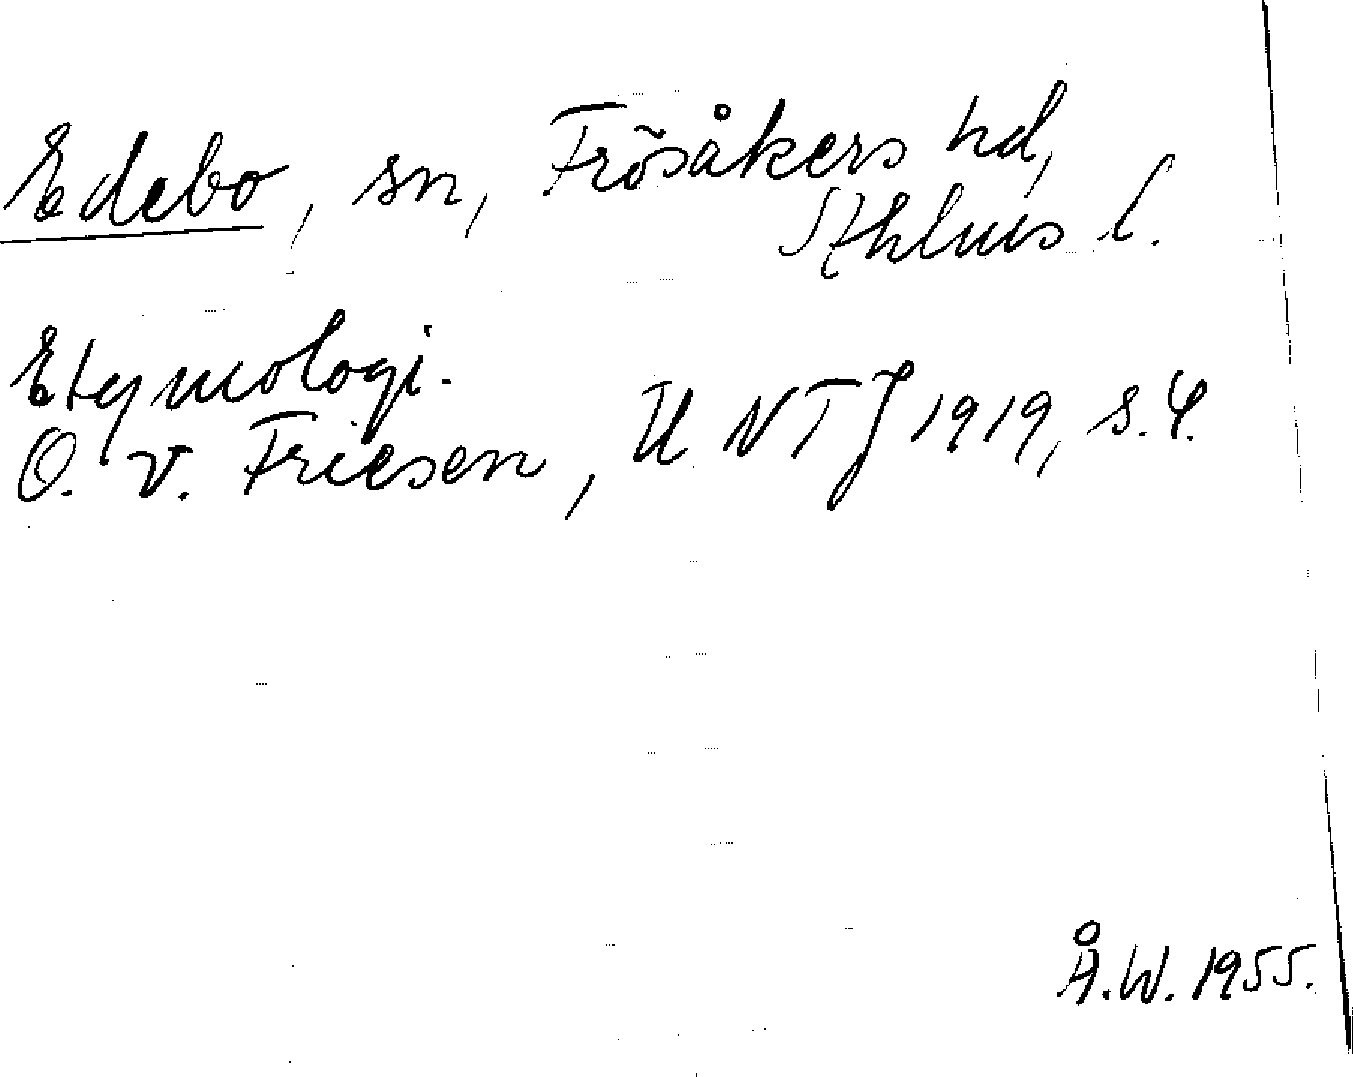 Edebo, sn, Frösåkers hd,
Sthlms l.
Etymologi.
O. v. Friesen, UNTJ 1919, s. 4.
Å.W. 1955.